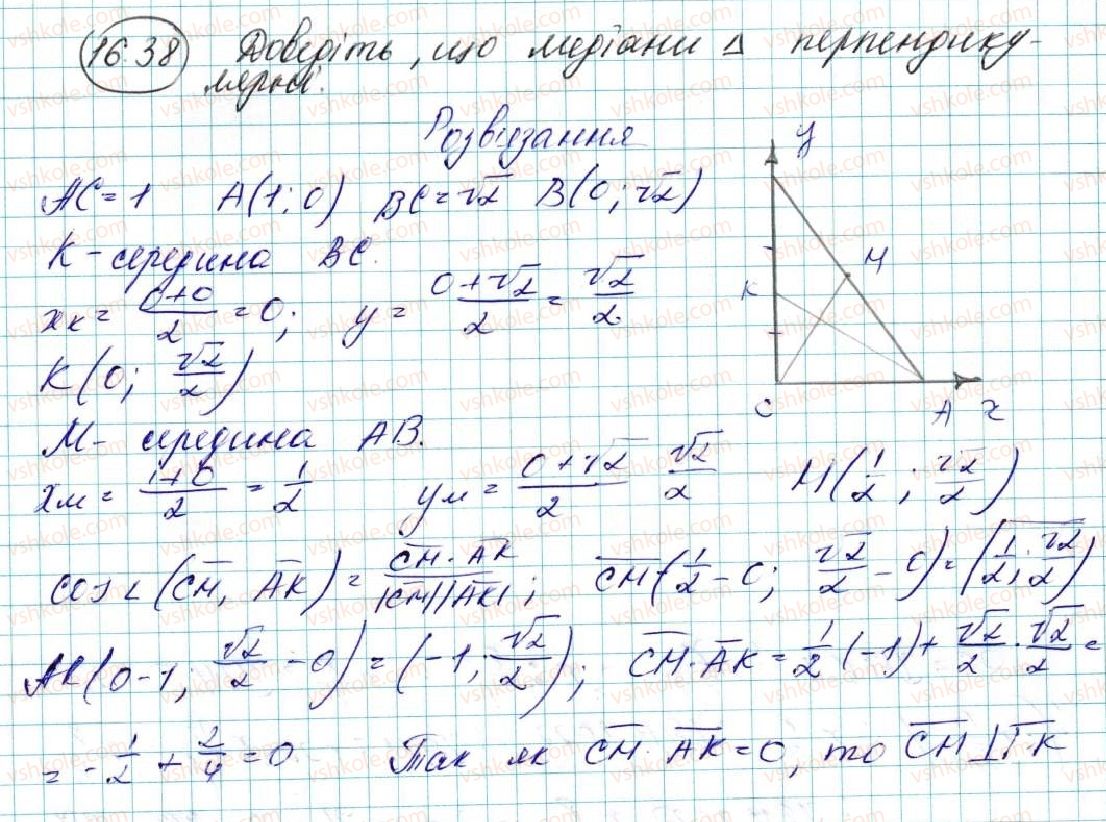 16.38 Доведіть, що медіани Δ перпендику-
лярні.
Розв'язання
AC = 1 A(1; 0) BC = √2 B(0; √2)
K - середина BC.
x_K = (0+0)/2 = 0; y = (0+√2)/2 = √2/2
K(0; √2/2)
M - середина AB.
x_M = (1+0)/2 = 1/2 y_M = (0+√2)/2 √2/2 M(1/2; √2/2)
cos∠(CM, AK) = CM·AK/|CM||AK|; CM(1/2 - 0; √2/2 - 0) = (1/2; √2/2)
AK(0-1; √2/2 - 0) = (-1; √2/2); CM·AK = 1/2(-1) + √2/2·√2/2 =
= -1/2 + 2/4 = 0 Так як CM·AK = 0, то CM⊥
y
M
K
C A x
vshkole.com